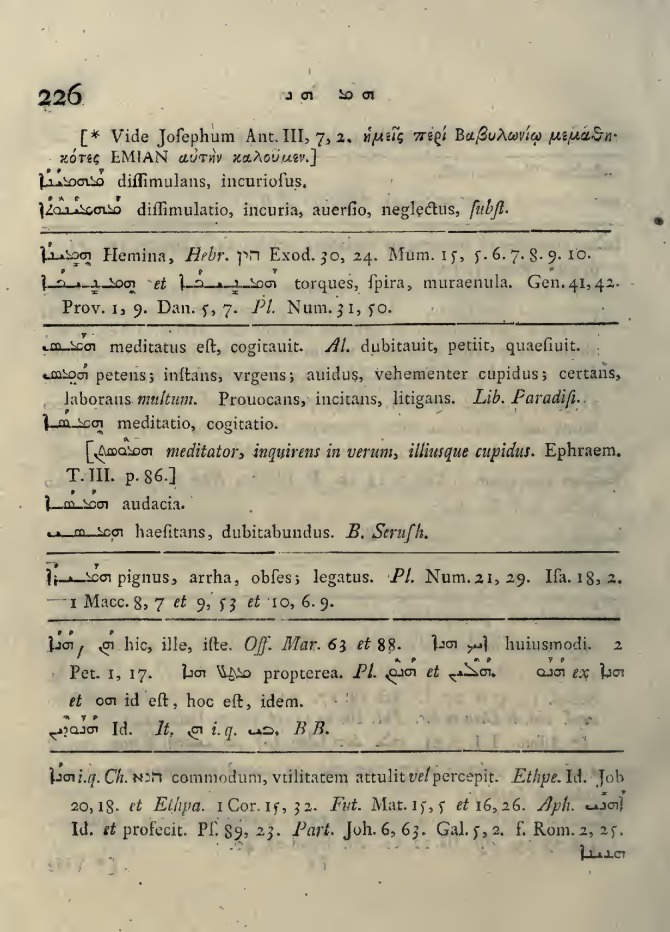 226 ܗܡ ܗܢ
[* Vide Joſephum Ant. III, 7, 2. ἡμεῖς περί Βαβυλωνίῳ μεμαθη-
κότες ΕΜΙΑΝ αὐτὴν καλοῦμεν.]
ܡܗܡܝܢܐ diſſimulans, incurioſus.
ܡܗܡܝܢܘܬܐ diſſimulatio, incuria, auerſio, neglectus, ſubſt.
ܗܡܝܢܐ Hemina, Hebr. הין Exod. 30, 24. Num. 15, 5. 6. 7. 8. 9. 10.
ܗܡܢܝܟܐ et ܗܡܢܝܟܐ torques, ſpira, muraenula. Gen. 41, 42.
Prov. 1, 9. Dan. 5, 7. Pl. Num. 31, 50.
ܗܡܣ meditatus eſt, cogitauit. Al. dubitauit, petiit, quaeſiuit.
ܗܡܣ petens; inſtans, vrgens; auidus, vehementer cupidus; certans,
laborans multum. Prouocans, incitans, litigans. Lib. Paradiſi.
ܗܡܣܐ meditatio, cogitatio.
[ meditator, inquirens in verum, illiusque cupidus. Ephraem.
T. III. p. 86.]
ܗܡܣܐ audacia.
haeſitans, dubitabundus. B. Seruſh.
ܗܡܝܪܐ pignus, arrha, obſes; legatus. Pl. Num. 21, 29. Iſa. 18, 2.
1 Macc. 8, 7 et 9, 53 et 10, 6. 9.
ܗܢܐ, ܗܢ hic, ille, iſte. Off. Mar. 63 et 88. ܐܝܟ ܗܢܐ huiusmodi. 2
Pet. 1, 17. ܡܛܠ ܗܢܐ propterea. Pl. ܗܢܘܢ et ܗܠܝܢ. ܗܢܘ ex ܗܢܐ
et ܗܘ id eſt, hoc eſt, idem.
Id. It. ܗܢ i. q. B B.
ܗܢܐ i. q. Ch. הנא commodum, vtilitatem attulit vel percepit. Ethpe. Id. Job
20, 18. et Ethpa. 1 Cor. 15, 32. Fut. Mat. 15, 5 et 16, 26. Aph. ܐܗܢܝ
Id. et profecit. Pſ. 89, 23. Part. Joh. 6, 63. Gal. 5, 2. ſ. Rom. 2, 25.
ܗܢܝܢܐ